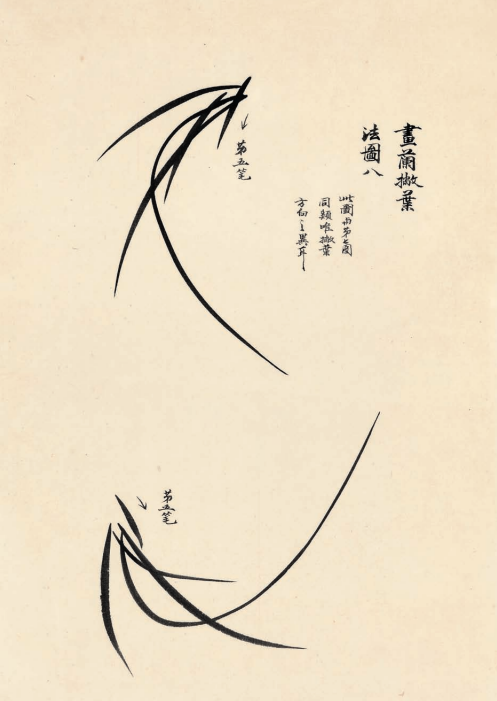 畫蘭撇葉
法圖八
此圖與第七圖
同類唯撇葉
方向之異耳
第五笔
第五笔